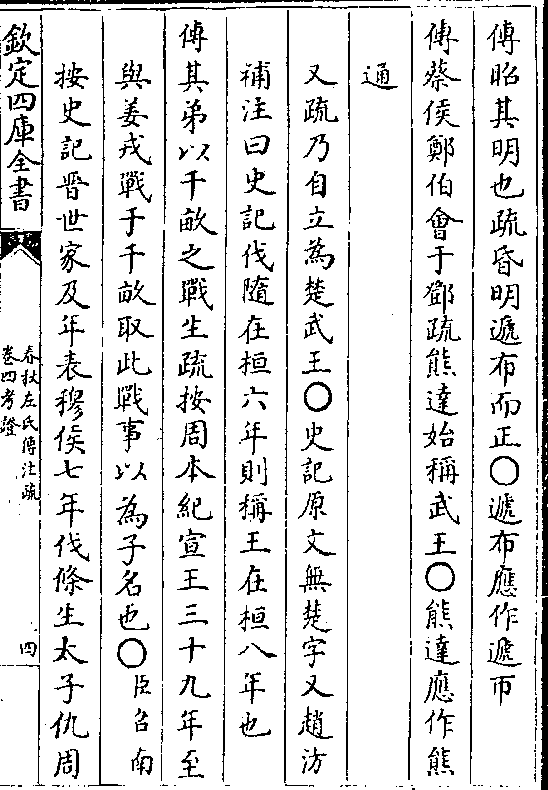 傳昭其明也疏昏明遞布而正○遞布應作遞帀
傳蔡侯鄭伯會于鄧疏熊達始稱武王○熊達應作熊
通
又疏乃自立為楚武王○史記原文無楚字又趙汸
補注曰史記伐隨在桓六年則稱王在桓八年也
傳其弟以千畝之戰生疏按周本紀宣王三十九年至
與姜戎戰于千畝取此戰事以為子名也○臣召南
按史記晉世家及年表穆侯七年伐條生太子仇周
欽定四庫全書
春秋左氏傳注疏
卷四考證
四